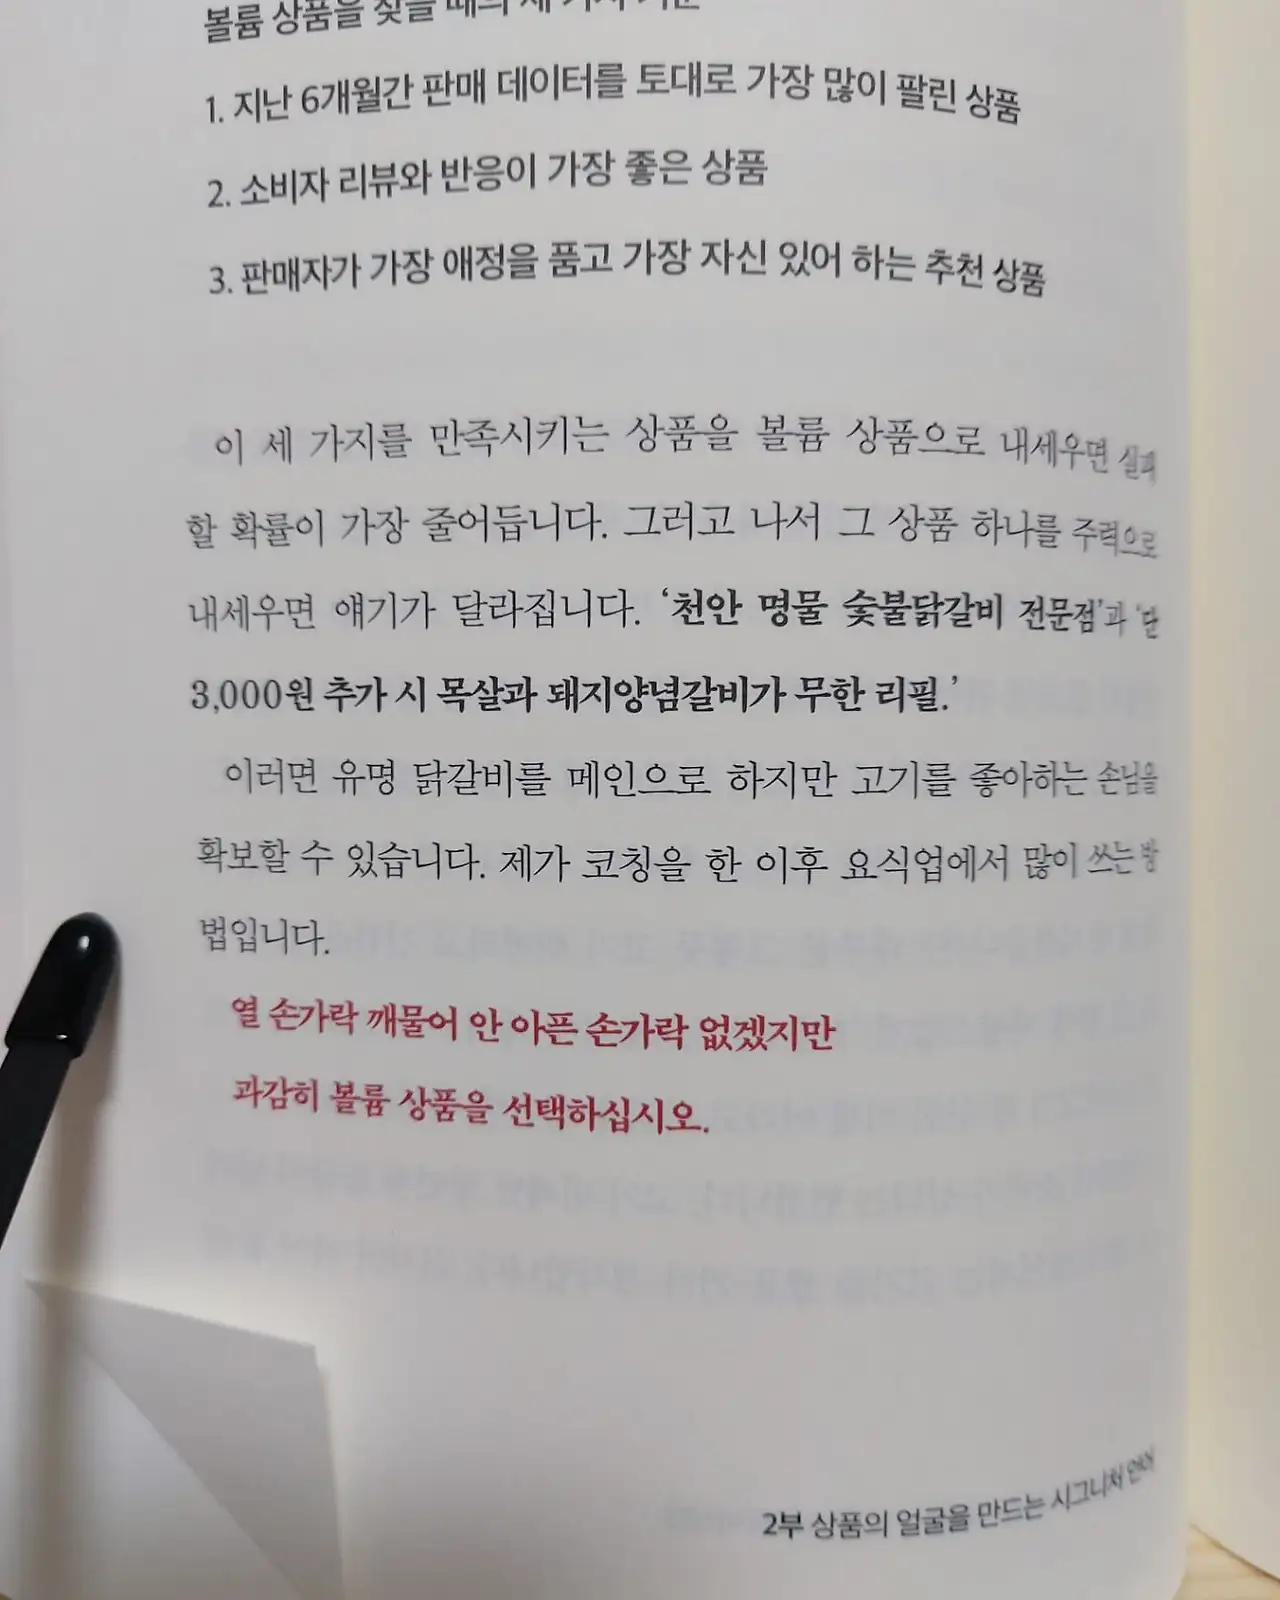 볼륨 상품을 찾을 때의 세 가지 기준
1. 지난 6개월간 판매 데이터를 토대로 가장 많이 팔린 상품
2. 소비자 리뷰와 반응이 가장 좋은 상품
3. 판매자가 가장 애정을 품고 가장 자신 있어 하는 추천 상품
이 세 가지를 만족시키는 상품을 볼륨 상품으로 내세우면 실패
할 확률이 가장 줄어듭니다. 그러고 나서 그 상품 하나를 주력으로
내세우면 얘기가 달라집니다. ‘천안 명물 숯불닭갈비 전문점’과 ‘단
3,000원 추가 시 목살과 돼지양념갈비가 무한 리필.’
이러면 유명 닭갈비를 메인으로 하지만 고기를 좋아하는 손님을
확보할 수 있습니다. 제가 코칭을 한 이후 요식업에서 많이 쓰는 방
법입니다.
열 손가락 깨물어 안 아픈 손가락 없겠지만
과감히 볼륨 상품을 선택하십시오.
2부 상품의 얼굴을 만드는 시그니처 언어